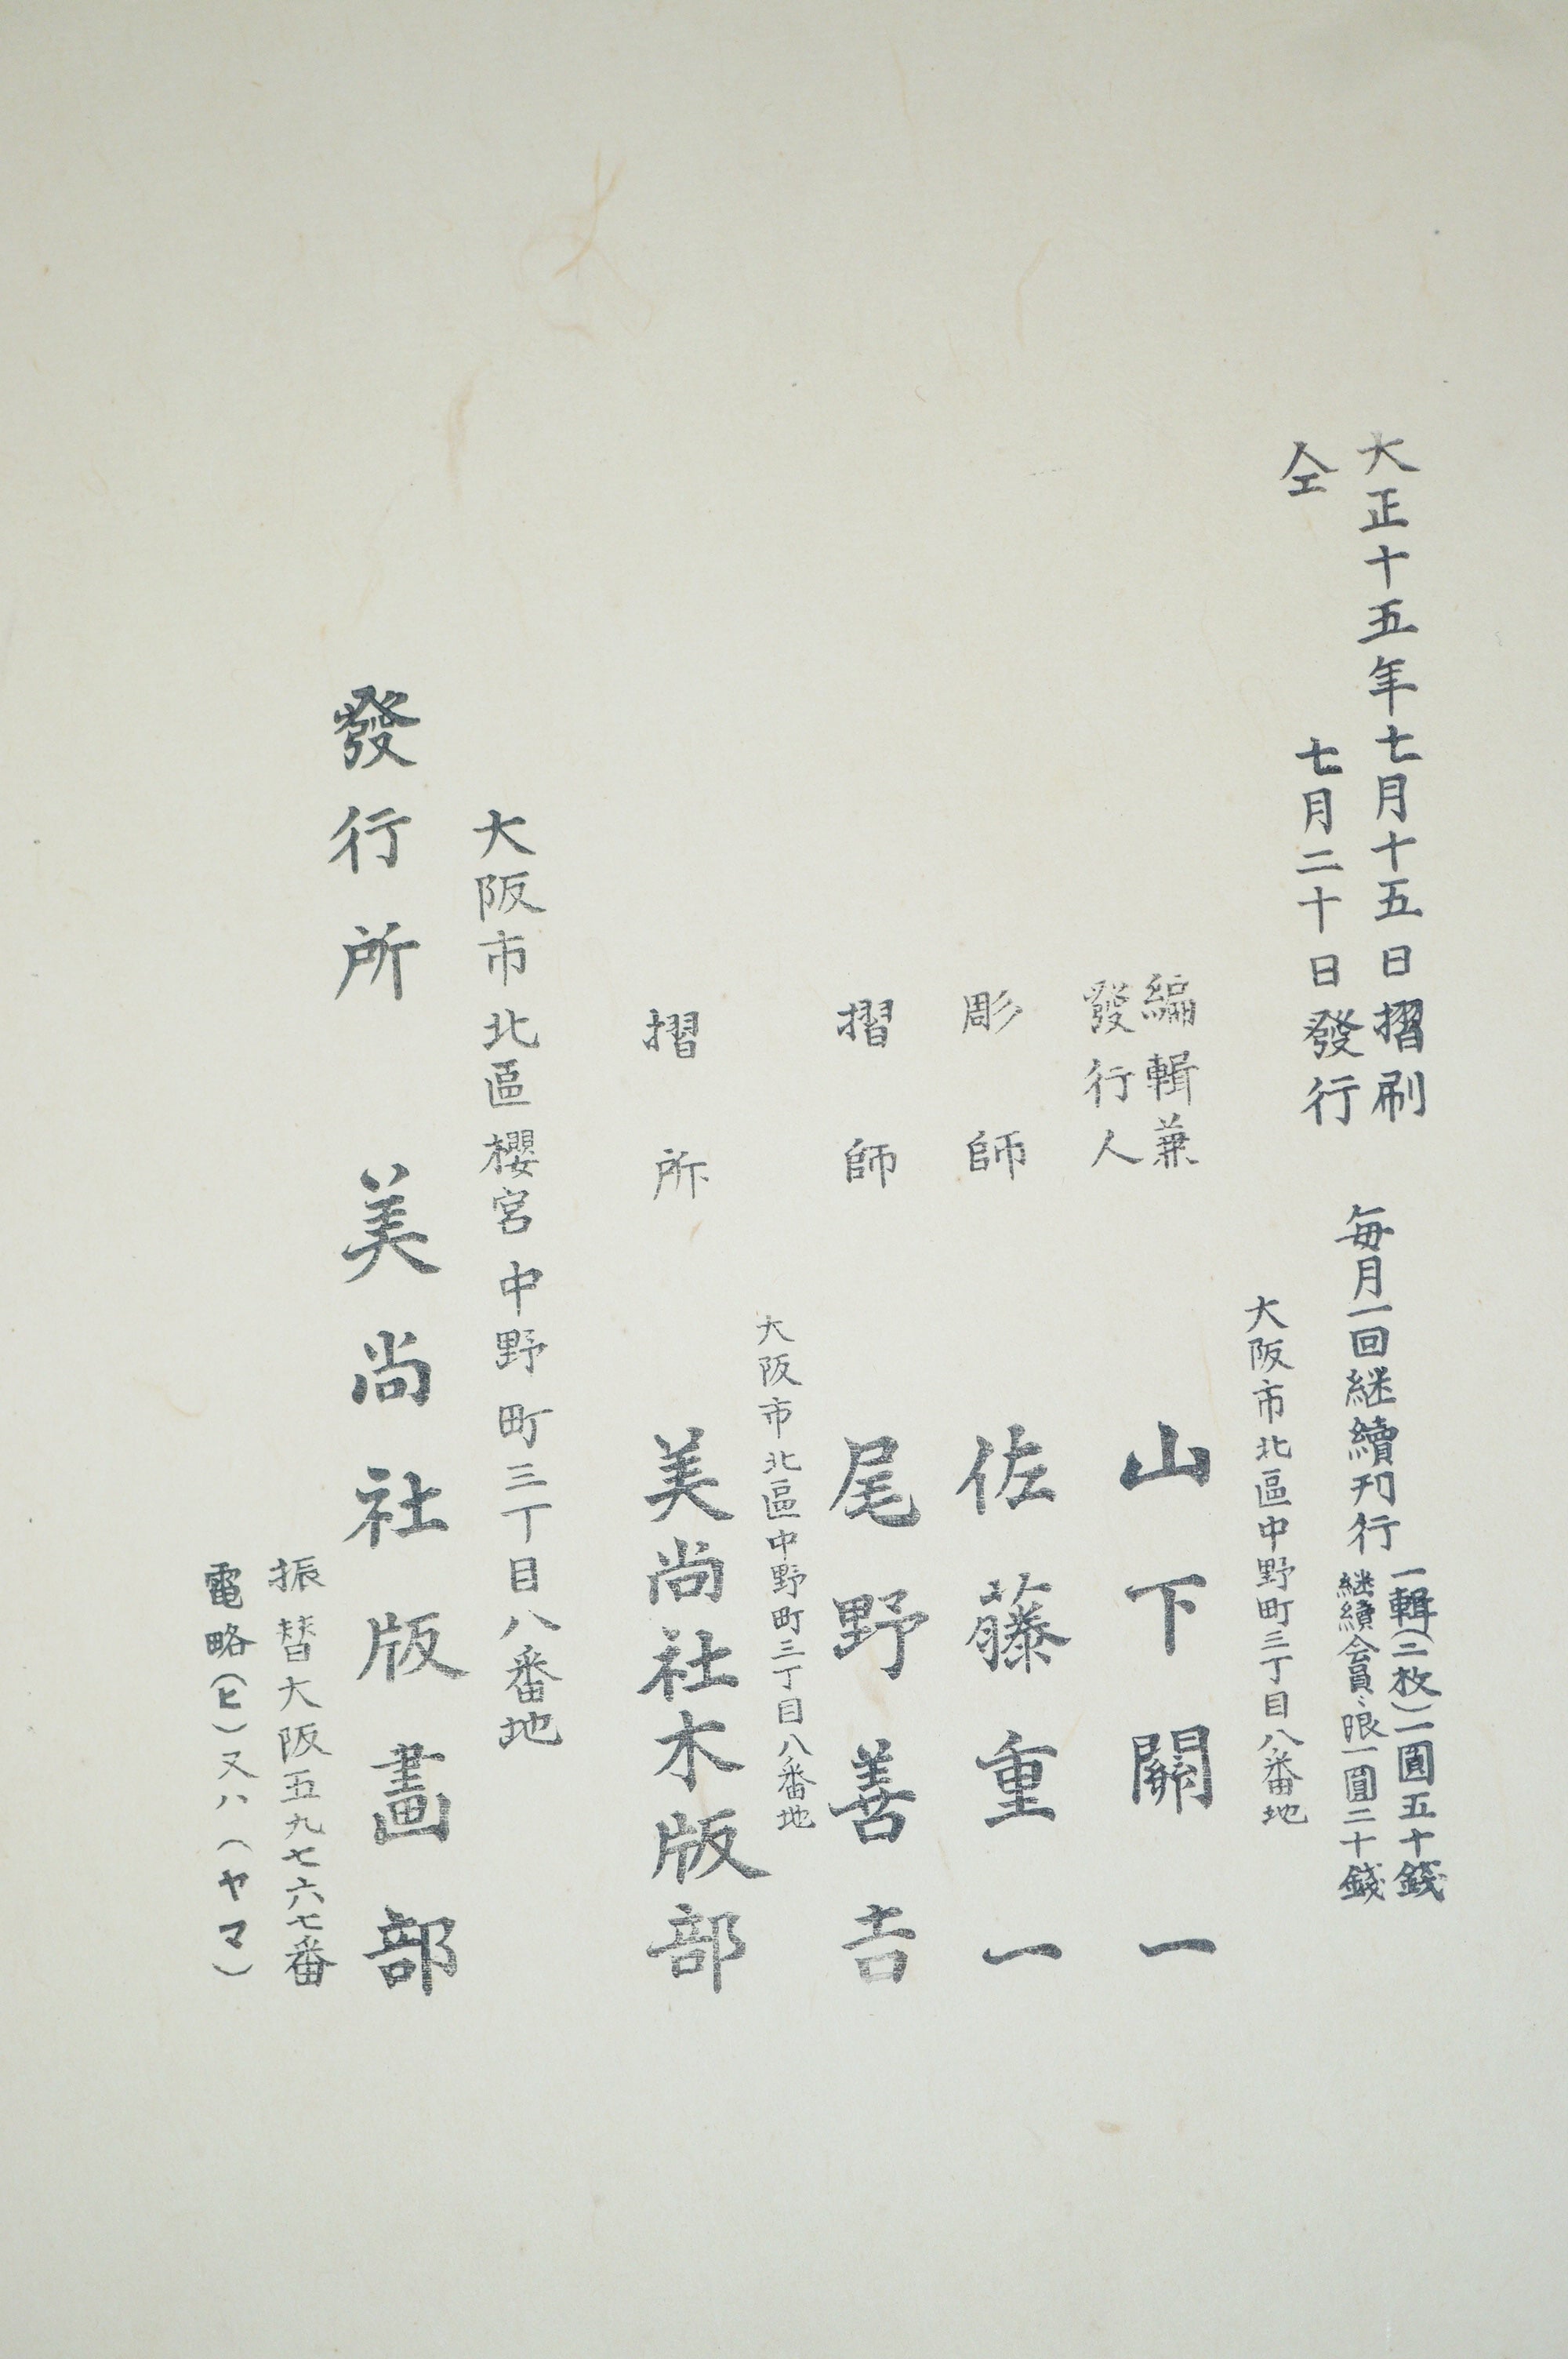 大正十五年七月十五日摺刷
仝七月二十日發行
毎月一回継續刊行
一輯(二枚)一圓五十錢
継續会員ニ限一圓二十錢
大阪市北區中野町三丁目八番地
編輯兼
發行人
山下關一
彫師 佐藤重一
摺師 尾野善吉
大阪市北區中野町三丁目八番地
摺所 美尚社木版部
大阪市北區櫻宮中野町三丁目八番地
發行所 美尚社版畫部
振替大阪五九七六七番
電略(ヒ)又ハ(ヤマ)